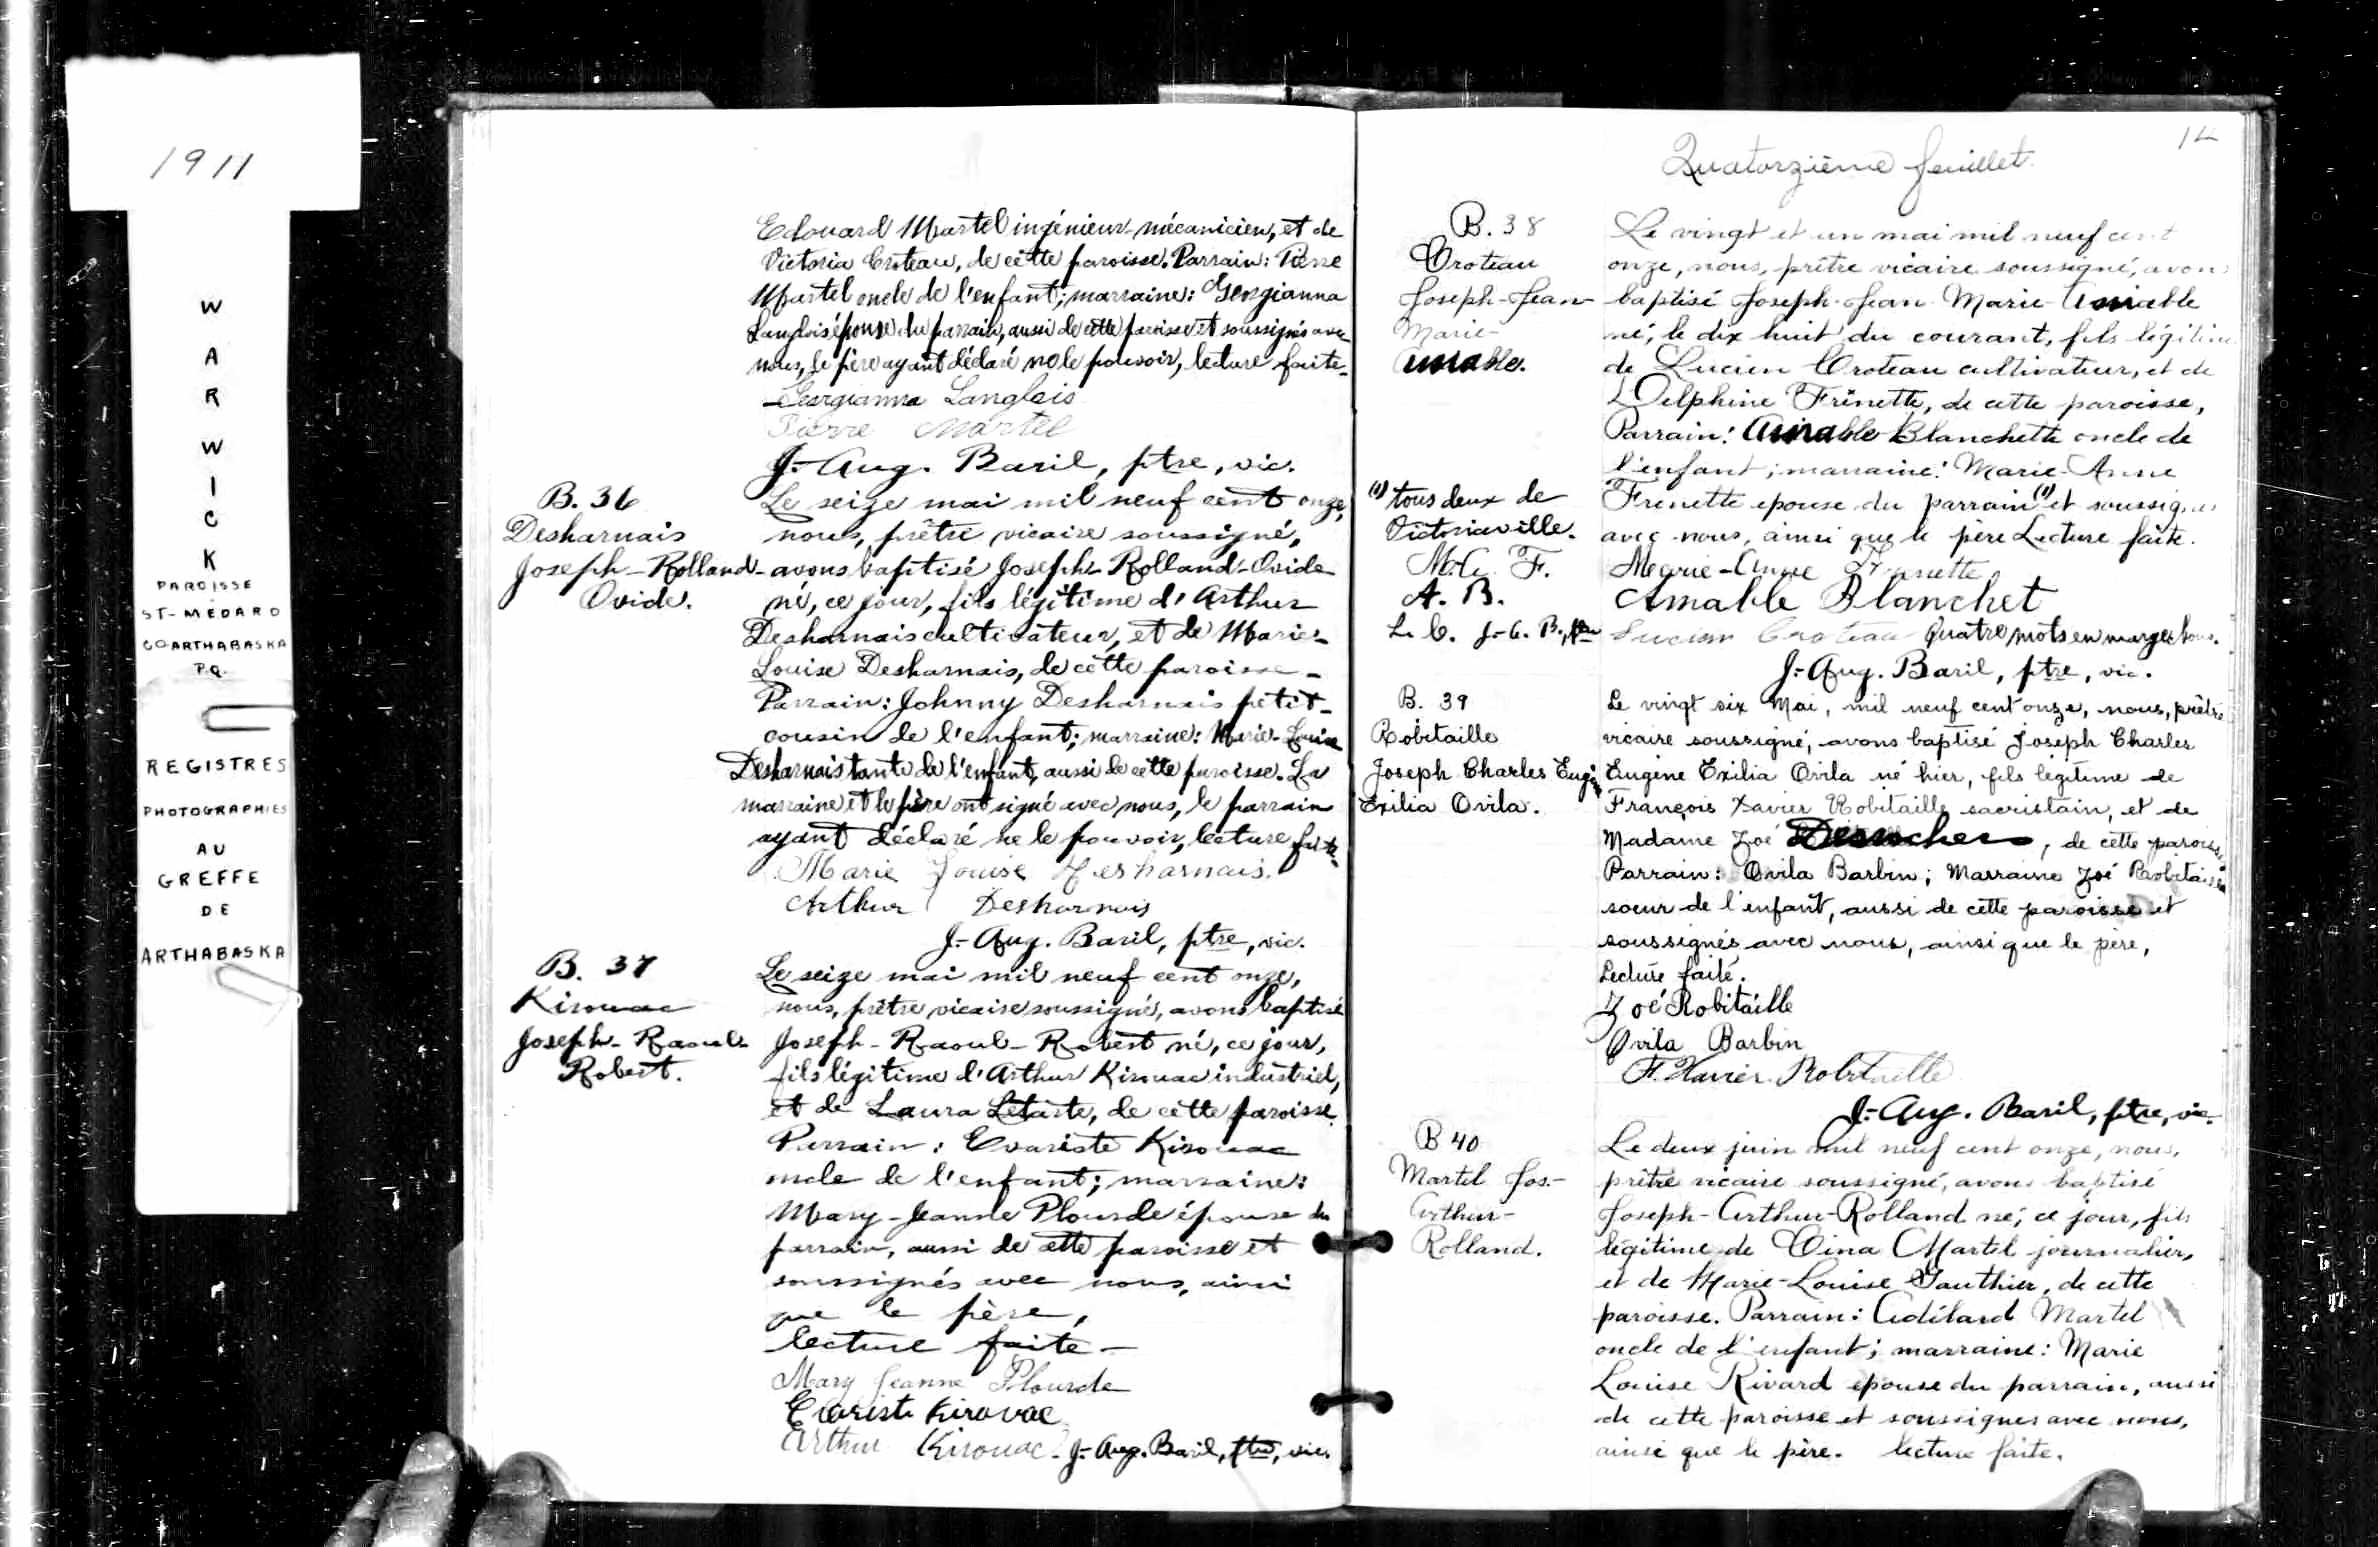 1911
W
A
R
W
I
C
K
PAROISSE
ST-MÉDARD
CO ARTHABASKA
P.Q.
REGISTRES
PHOTOGRAPHIES
AU
GREFFE
DE
ARTHABASKA
Edouard Martel ingénieur-mécanicien, et de
Victoria Croteau, de cette paroisse. Parrain: Pierre
Martel oncle de l'enfant; marraine: Georgianna
Langlois épouse du parrain, aussi de cette paroisse et soussignés avec
nous, le père ayant déclaré ne le pouvoir, lecture faite-
Georgianna Langlois
Pierre Martel
J.-Aug. Baril, ptre, vic.
B. 36
Desharnais
Joseph-Rolland-
Ovide.
Le seize mai mil neuf cent onze,
nous, prêtre vicaire soussigné,
avons baptisé Joseph-Rolland-Ovide
né, ce jour, fils légitime d'Arthur
Desharnais cultivateur, et de Marie-
Louise Desharnais, de cette paroisse-
Parrain: Johnny Desharnais petit-
cousin de l'enfant; marraine: Marie-Louise
Desharnais tante de l'enfant, aussi de cette paroisse. La
marraine et le père ont signé avec nous, le parrain
ayant déclaré ne le pouvoir, lecture faite
Marie Louise Desharnais.
Arthur Desharnais
J.-Aug. Baril, ptre, vic.
B. 37
Kirouac
Joseph-Raoul-
Robert.
Le seize mai mil neuf cent onze,
nous, prêtre vicaire soussigné, avons baptisé
Joseph-Raoul-Robert né, ce jour,
fils légitime d'Arthur Kirouac industriel,
et de Laura Letarte, de cette paroisse.
Parrain: Evariste Kirouac
oncle de l'enfant; marraine:
Mary-Jeanne Plourde épouse du
parrain, aussi de cette paroisse et
soussignés avec nous, ainsi
que le père,
lecture faite-
Mary Jeanne Plourde
Evariste Kirouac
Arthur Kirouac. J.-Aug. Baril, ptre, vic.
14
Quatorzième feuillet.
B. 38
Croteau
Joseph-Jean-
Marie-
Amable.
(1) tous deux de
Victoriaville.
M.A. F.
A. B.
L. C. J.-A. B., ptre
Le vingt et un mai mil neuf cent
onze, nous, prêtre vicaire soussigné, avons
baptisé Joseph-Jean-Marie-Amable
né, le dix huit du courant, fils légitime
de Lucien Croteau cultivateur, et de
Delphine Frenette, de cette paroisse,
Parrain: Amable Blanchette oncle de
l'enfant; marraine: Marie-Anne
Frenette epouse du parrain (1) et soussignés
avec nous, ainsi que le père Lecture faite.
Marie-Anne Frenette
Amable Blanchet
Lucien Croteau Quatre mots en marge bons.
J.-Aug. Baril, ptre, vic.
B. 39
Robitaille
Joseph Charles Eugène
Exilia Ovila.
Le vingt six Mai, mil neuf cent onze, nous, prêtre
vicaire soussigné, avons baptisé Joseph Charles
Eugène Exilia Ovila né hier, fils légitime de
François Xavier Robitaille sacristain, et de
Madame Zoé Desrochers, de cette paroisse
Parrain: Ovila Barbin; Marraine Zoé Robitaille
soeur de l'enfant, aussi de cette paroisse et
soussignés avec nous, ainsi que le père,
Lecture faite.
Zoé Robitaille
Ovila Barbin
F. Xavier Robitaille
J.-Aug. Baril, ptre, vic.
B 40
Martel Jos.-
Arthur-
Rolland.
Le deux juin mil neuf cent onze, nous,
prêtre vicaire soussigné, avons baptisé
Joseph-Arthur-Rolland né, ce jour, fils
légitime de Cina Martel journalier,
et de Marie-Louise Gauthier, de cette
paroisse. Parrain: Adélard Martel
oncle de l'enfant; marraine: Marie
Louise Rivard epouse du parrain, aussi
de cette paroisse et soussignés avec nous,
ainsi que le père. lecture faite.